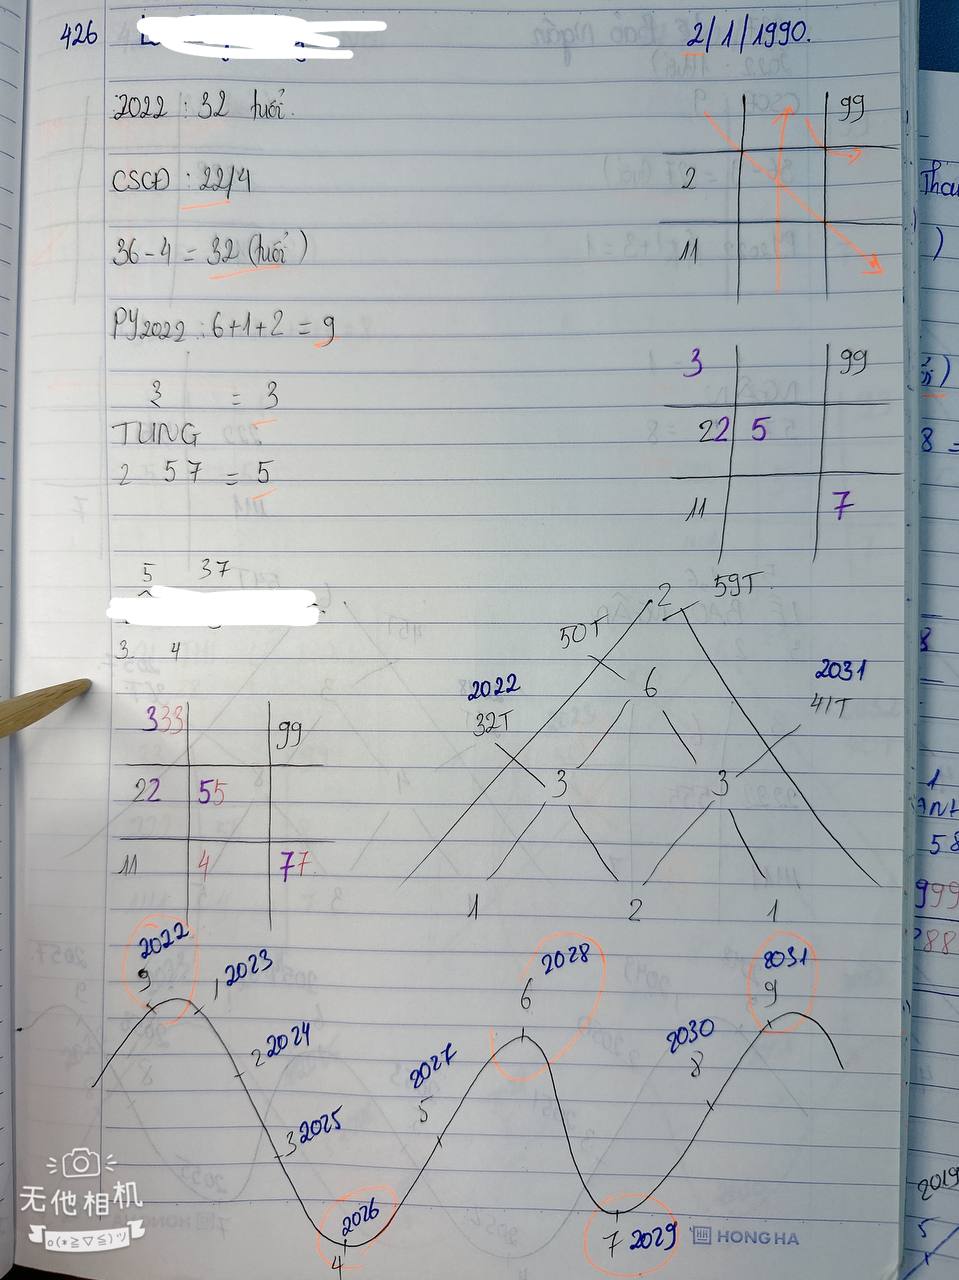 426
2/1/1990.
2022 : 32 tuổi.
CSCĐ : 22/4
36 - 4 = 32 (tuổi)
PY2022 : 6+1+2 = 9
3 = 3
TUNG
2 57 = 5
5 37
3 4
99
2
11
3 99
22 5
11 7
333 99
22 55
11 4 77
2 59T
50T
6
2022
32T
2031
41T
3 3
1 2 1
2022
9
1 2023
2 2024
3 2025
2026
4
2027
5
2028
6
7 2029
2030
8
2031
9
无他相机
o(*≧▽≦)ツ
HH HONG HA
Tha
)
8 =
1
58
999
88
2019
5